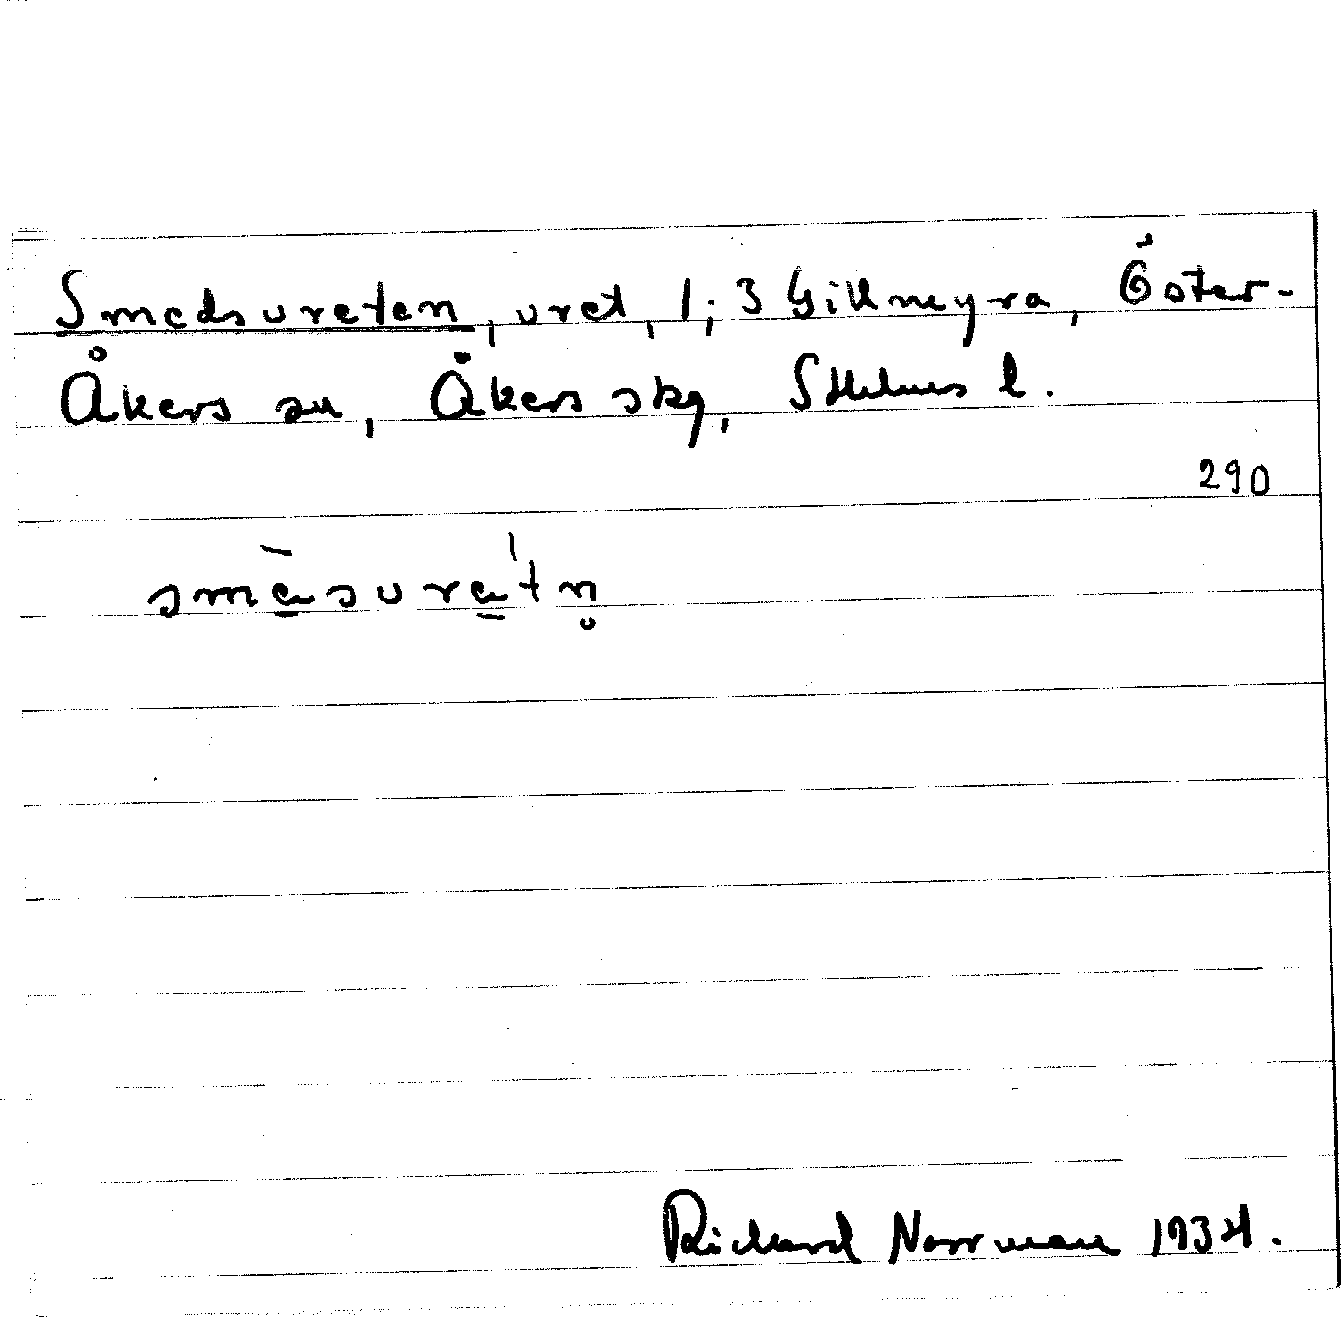 Smedsvreten, vret, 1;3 Gillmeyra, Öster-
Åkers sn, Åkers skg, Sthlms l.
290
smēsvrétn̥
Richard Norrman 1934.